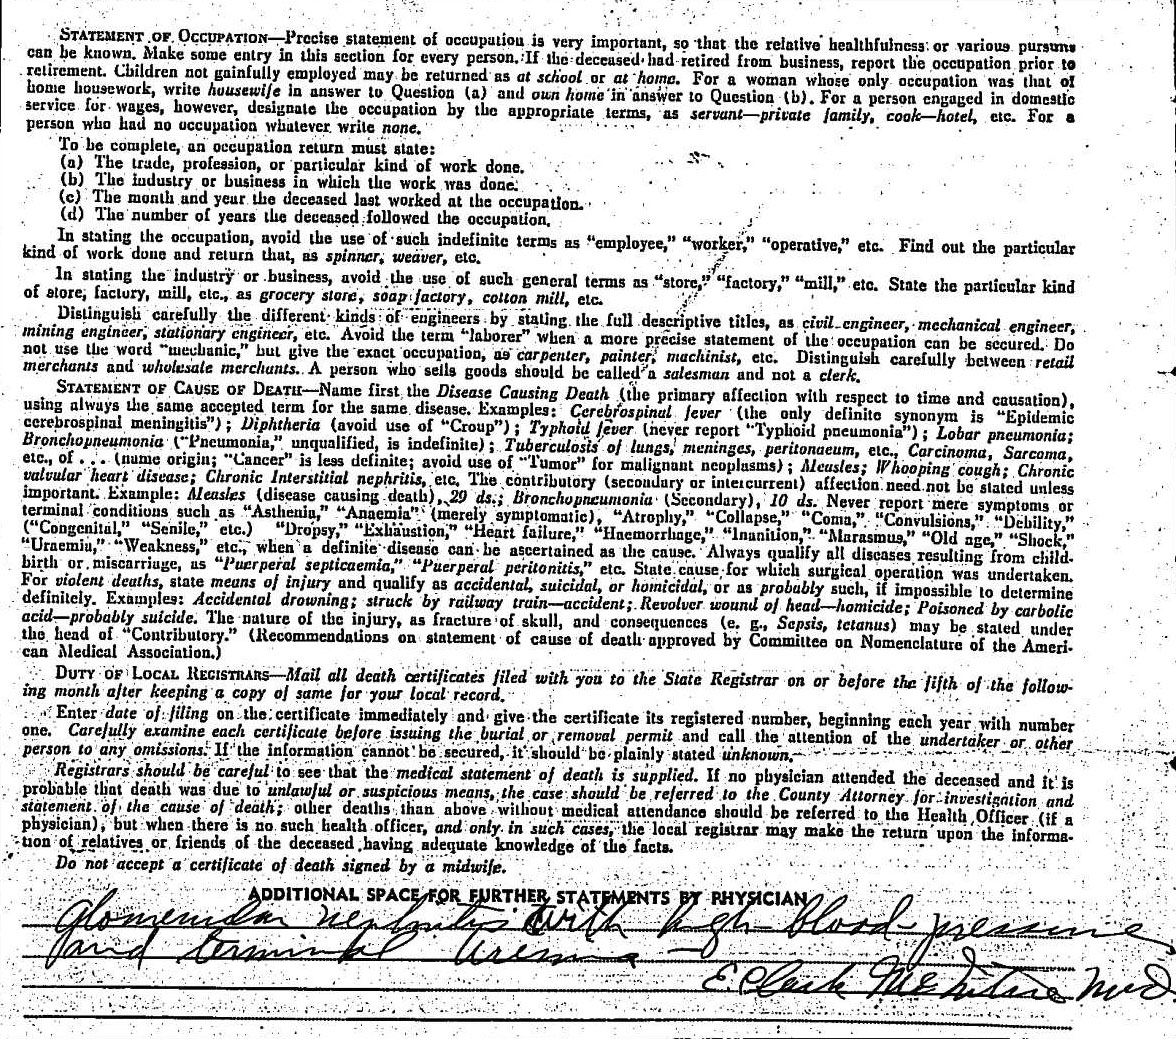 STATEMENT OF OCCUPATION—Precise statement of occupation is very important, so that the relative healthfulness or various pursuits
can be known. Make some entry in this section for every person. If the deceased had retired from business, report the occupation prior to
retirement. Children not gainfully employed may be returned as at school or at home. For a woman whose only occupation was that of
home housework, write housewife in answer to Question (a) and own home in answer to Question (b). For a person engaged in domestic
service for wages, however, designate the occupation by the appropriate terms, as servant—private family, cook—hotel, etc. For a
person who had no occupation whatever write none.
To be complete, an occupation return must state:
(a) The trade, profession, or particular kind of work done.
(b) The industry or business in which the work was done.
(c) The month and year the deceased last worked at the occupation.
(d) The number of years the deceased followed the occupation.
In stating the occupation, avoid the use of such indefinite terms as “employee,” “worker,” “operative,” etc. Find out the particular
kind of work done and return that, as spinner, weaver, etc.
In stating the industry or business, avoid the use of such general terms as “store,” “factory,” “mill,” etc. State the particular kind
of store, factory, mill, etc., as grocery store, soap factory, cotton mill, etc.
Distinguish carefully the different kinds of engineers by stating the full descriptive titles, as civil engineer, mechanical engineer,
mining engineer, stationary engineer, etc. Avoid the term “laborer” when a more precise statement of the occupation can be secured. Do
not use the word “mechanic,” but give the exact occupation, as carpenter, painter, machinist, etc. Distinguish carefully between retail
merchants and wholesale merchants. A person who sells goods should be called a salesman and not a clerk.
STATEMENT OF CAUSE OF DEATH—Name first the Disease Causing Death (the primary affection with respect to time and causation),
using always the same accepted term for the same disease. Examples: Cerebrospinal fever (the only definite synonym is “Epidemic
cerebrospinal meningitis”); Diphtheria (avoid use of “Croup”); Typhoid fever (never report “Typhoid pneumonia”); Lobar pneumonia;
Bronchopneumonia (“Pneumonia,” unqualified, is indefinite); Tuberculosis of lungs, meninges, peritonaeum, etc., Carcinoma, Sarcoma,
etc., of . . . (name origin; “Cancer” is less definite; avoid use of “Tumor” for malignant neoplasms); Measles; Whooping cough; Chronic
valvular heart disease; Chronic Interstitial nephritis, etc. The contributory (secondary or intercurrent) affection need not be stated unless
important. Example: Measles (disease causing death), 29 ds.; Bronchopneumonia (Secondary), 10 ds. Never report mere symptoms or
terminal conditions such as “Asthenia,” “Anaemia” (merely symptomatic), “Atrophy,” “Collapse,” “Coma,” “Convulsions,” “Debility,”
(“Congenital,” “Senile,” etc.) “Dropsy,” “Exhaustion,” “Heart failure,” “Haemorrhage,” “Inanition,” “Marasmus,” “Old age,” “Shock,”
“Uraemia,” “Weakness,” etc., when a definite disease can be ascertained as the cause. Always qualify all diseases resulting from child-
birth or miscarriage, as “Puerperal septicaemia,” “Puerperal peritonitis,” etc. State cause for which surgical operation was undertaken.
For violent deaths, state means of injury and qualify as accidental, suicidal, or homicidal, or as probably such, if impossible to determine
definitely. Examples: Accidental drowning; struck by railway train—accident; Revolver wound of head—homicide; Poisoned by carbolic
acid—probably suicide. The nature of the injury, as fracture of skull, and consequences (e. g., Sepsis, tetanus) may be stated under
the head of “Contributory.” (Recommendations on statement of cause of death approved by Committee on Nomenclature of the Ameri-
can Medical Association.)
DUTY OF LOCAL REGISTRARS—Mail all death certificates filed with you to the State Registrar on or before the fifth of the follow-
ing month after keeping a copy of same for your local record.
Enter date of filing on the certificate immediately and give the certificate its registered number, beginning each year with number
one. Carefully examine each certificate before issuing the burial or removal permit and call the attention of the undertaker or other
person to any omissions. If the information cannot be secured, it should be plainly stated unknown.
Registrars should be careful to see that the medical statement of death is supplied. If no physician attended the deceased and it is
probable that death was due to unlawful or suspicious means, the case should be referred to the County Attorney for investigation and
statement of the cause of death; other deaths than above without medical attendance should be referred to the Health Officer (if a
physician), but when there is no such health officer, and only in such cases, the local registrar may make the return upon the informa-
tion of relatives or friends of the deceased having adequate knowledge of the facts.
Do not accept a certificate of death signed by a midwife.
ADDITIONAL SPACE FOR FURTHER STATEMENTS BY PHYSICIAN
Glomerular nephritis with high blood pressure
and terminal Uremia
E. Clark McIntire MD